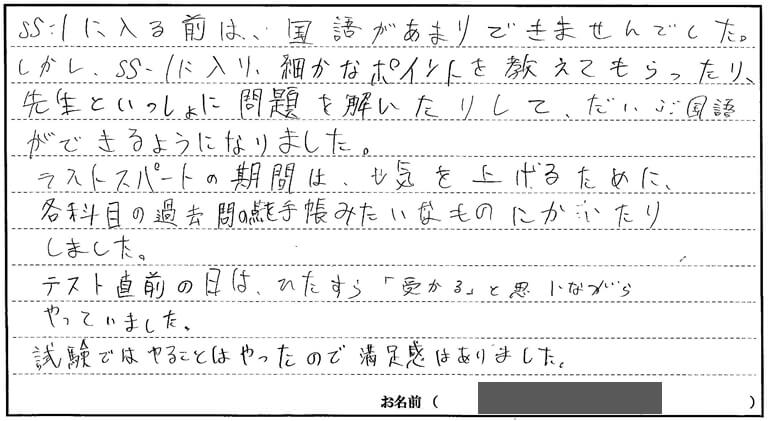 SS-1に入る前は、国語があまりできませんでした。
しかし、SS-1に入り、細かなポイントを教えてもらったり、
先生といっしょに問題を解いたりして、だいぶ国語
ができるようになりました。
ラストスパートの期間は、や気を上げるために、
各科目の過去問の点を手帳みたいなものにかいたり
しました。
テスト直前の日は、ひたすら「受かる」と思いながら
やっていました。
試験ではやることはやったので満足感はありました。
お名前（　　）